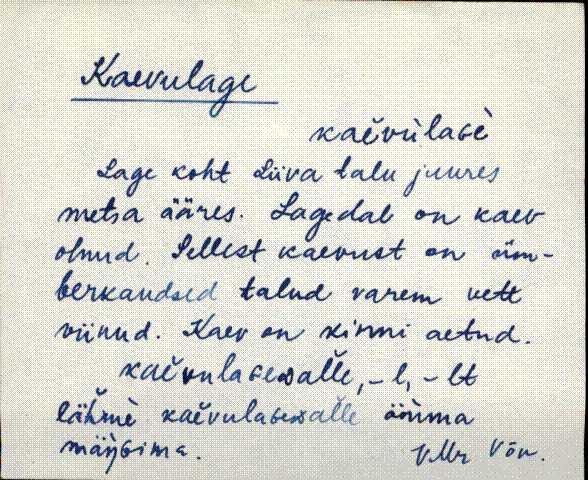 Kaevulage
kaĕvùlaɢè
Lage koht Liiva talu juures
metsa ääres. Lagedal on kaev
olnud. Sellest kaevust on üm-
berkaudsed talud varem vett
viinud. Kaev on kinni aetud.
kaĕvulaɢewalle, -l, -lt
lähme kaĕvulaɢewalle
mäŋɢima. VMr Võn.